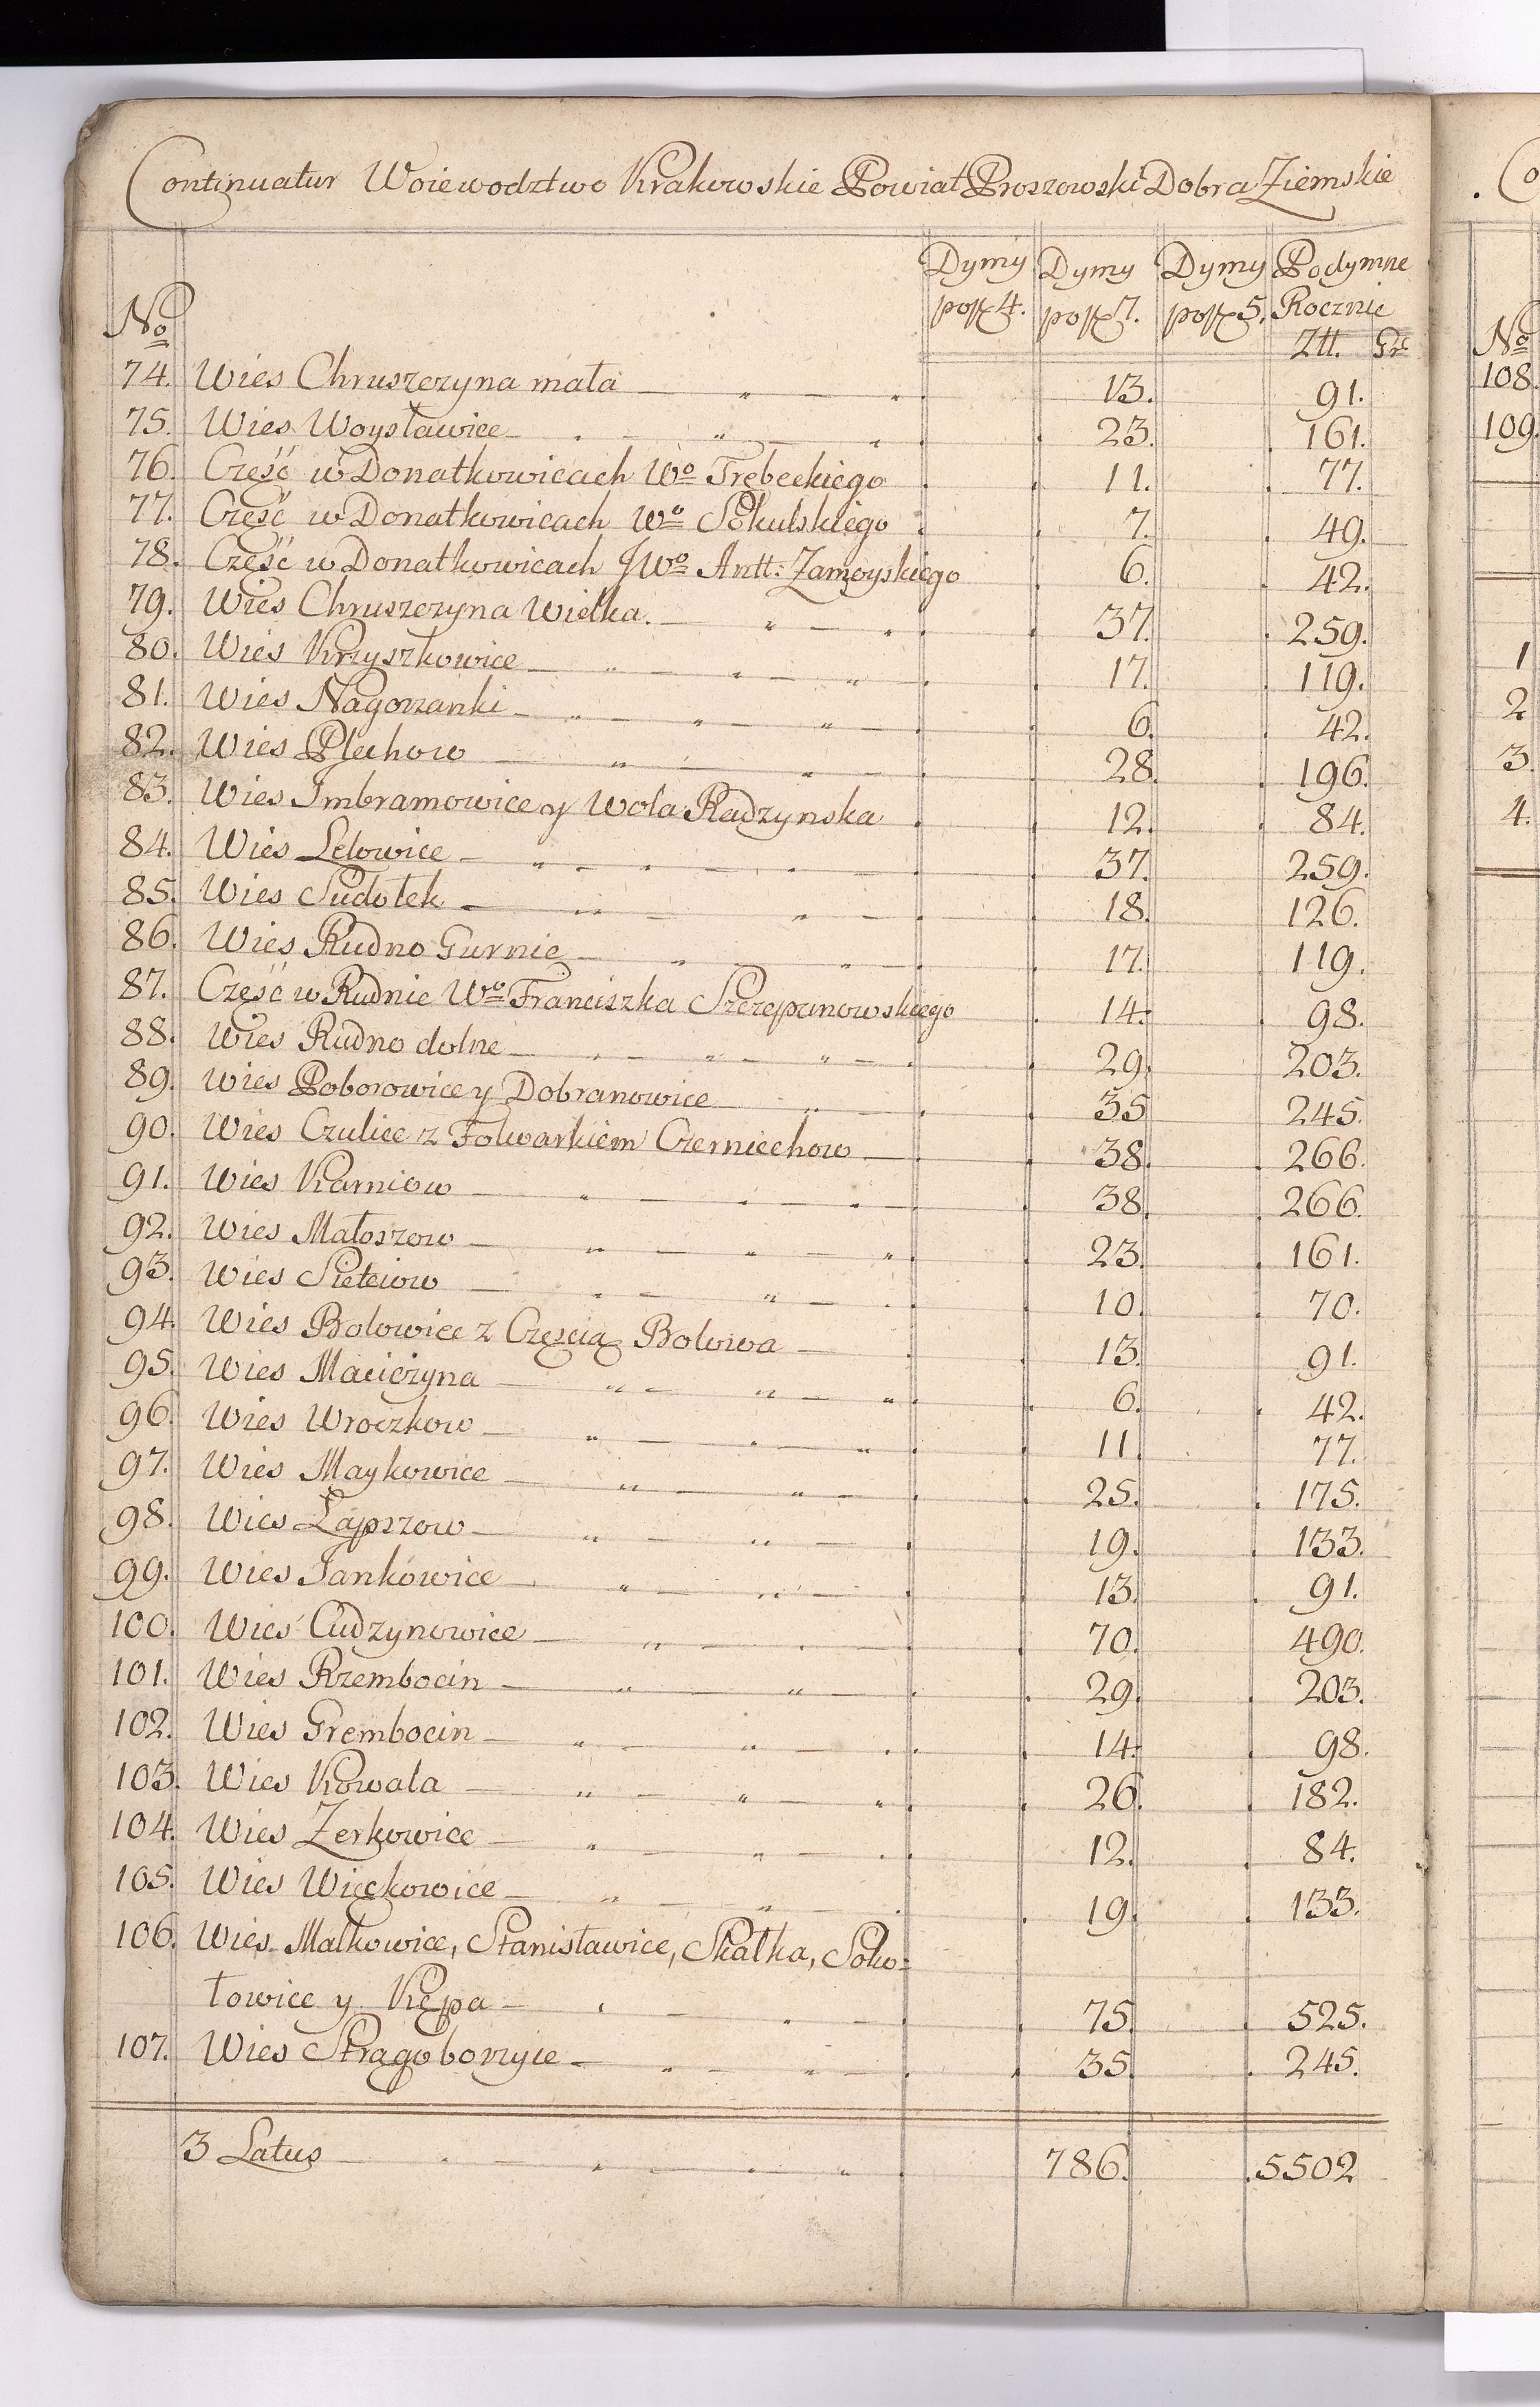 Continuatur Woiewodztwo Krakowskie Powiat Proszowski Dobra Ziemskie
No Dymy po 4. Dymy po 7. Dymy po 5. Podymne Rocznie Złł. Gr
74. Wies Chruszczyna mała 13. 91.
75. Wies Woysławice 23. 161.
76. Część w Donatkowicach Wo Trębeckiego 11. 77.
77. Część w Donatkowicach Wo Sokulskiego 7. 49.
78. Część w Donatkowicach JWo Antt: Zamoyskiego 6. 42.
79. Wies Chruszczyna Wielka. 37. 259.
80. Wies Krzyszkowice 17. 119.
81. Wies Nagorzanki 6. 42.
82. Wies Plechow 28. 196.
83. Wies Imbramowice y Wola Radzynska 12. 84.
84. Wies Lelowice 37. 259.
85. Wies Sudołek 18. 126.
86. Wies Rudno Gurnie 17. 119.
87. Część w Rudnie Wo Franciszka Szczepanowskiego 14. 98.
88. Wies Rudno dolne 29. 203.
89. Wies Poborowice y Dobranowice 35 245.
90. Wies Czulice z Folwarkiem Czerniechow 38. 266.
91. Wies Karniow 38. 266.
92. Wies Małoszow 23. 161.
93. Wies 10. 70.
94. Wies Bolowice z Częscią Bolowa 13. 91.
95. Wies Macierzyna 6. 42.
96. Wies Wroczkow 11. 77.
97. Wies Maykowice 25. 175.
98. Wies Łapszow 19. 133.
99. Wies Jankowice 13. 91.
100. Wies Cudzynowice 70. 490.
101. Wies Rzembocin 29. 203.
102. Wies Grembocin 14. 98.
103. Wies Kowala 26. 182.
104. Wies Zerkowice 12. 84.
105. Wies Więckowice 19. 133.
106. Wies Malkowice, Stanisławice, Skałka, Soko=
łowice y Kępa 75. 525.
107. Wies Stragoborzyce 35. 245.
3 Latus 786. 5502
No
108.
109.
1
2
3.
4.